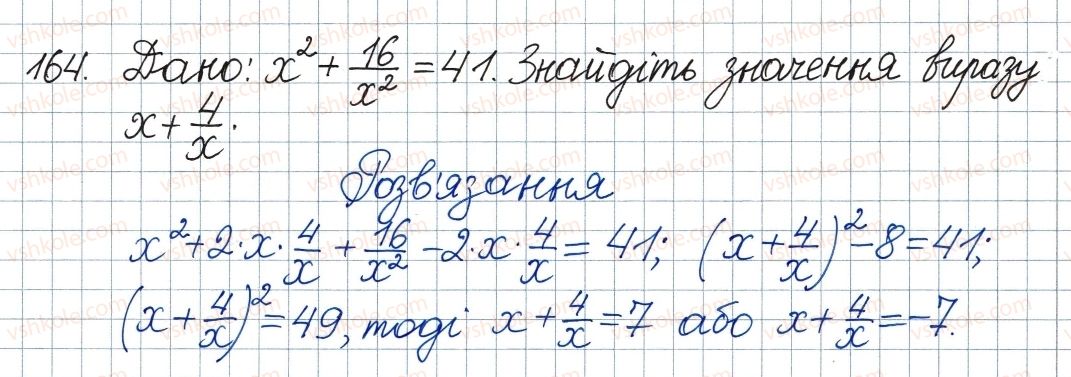 164. Дано: x² + 16/x² = 41. Знайдіть значення виразу
x + 4/x.
Розв'язання
x² + 2·x·4/x + 16/x² − 2·x·4/x = 41; (x + 4/x)² − 8 = 41;
(x + 4/x)² = 49, тоді x + 4/x = 7 або x + 4/x = −7.